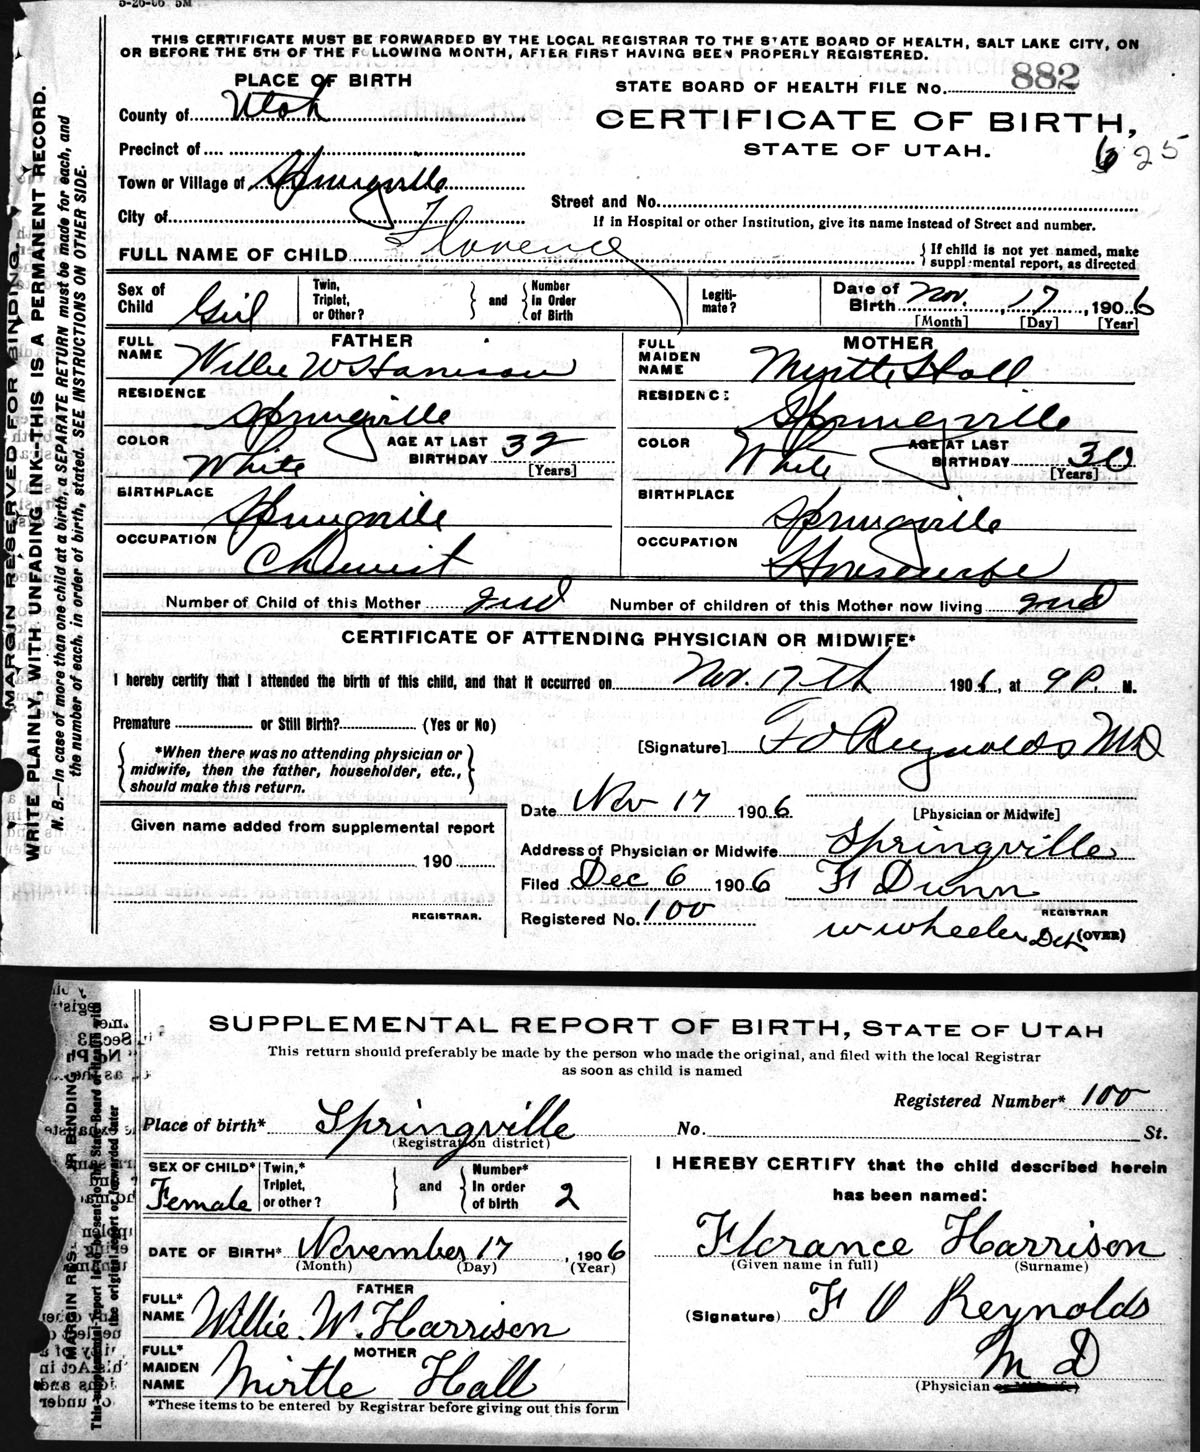 5-26-06 5M
THIS CERTIFICATE MUST BE FORWARDED BY THE LOCAL REGISTRAR TO THE STATE BOARD OF HEALTH, SALT LAKE CITY, ON
OR BEFORE THE 5TH OF THE FOLLOWING MONTH, AFTER FIRST HAVING BEEN PROPERLY REGISTERED.
PLACE OF BIRTH
STATE BOARD OF HEALTH FILE No. 882
County of Utah
CERTIFICATE OF BIRTH,
STATE OF UTAH.
625
Precinct of
Town or Village of Springville
Street and No.
City of
If in Hospital or other Institution, give its name instead of Street and number.
FULL NAME OF CHILD Florence
{If child is not yet named, make
supplemental report, as directed
Sex of Child Girl
Twin, Triplet, or Other?
and
Number In Order of Birth
Legiti-mate?
Date of Birth Nov. 17, 1906
[Month] [Day] [Year]
FATHER
FULL NAME Willie W Harrison
RESIDENCE Springville
COLOR White
AGE AT LAST BIRTHDAY 32
[Years]
BIRTHPLACE Springville
OCCUPATION Chemist
MOTHER
FULL MAIDEN NAME Myrtle Hall
RESIDENCE Springville
COLOR White
AGE AT LAST BIRTHDAY 30
[Years]
BIRTHPLACE Springville
OCCUPATION Housewife
Number of Child of this Mother 2nd
Number of children of this Mother now living 2nd
CERTIFICATE OF ATTENDING PHYSICIAN OR MIDWIFE*
I hereby certify that I attended the birth of this child, and that it occurred on Nov. 17th 1906, at 9 P. M.
Premature or Still Birth? (Yes or No)
*When there was no attending physician or
midwife, then the father, householder, etc.,
should make this return.
[Signature] F O Reynolds MD
[Physician or Midwife]
Date Nov 17 1906
Address of Physician or Midwife Springville
Filed Dec 6 1906
F Dunn
REGISTRAR
Registered No. 100
W Wheeler Dep
(OVER)
Given name added from supplemental report
190
REGISTRAR.
MARGIN RESERVED FOR BINDING.
WRITE PLAINLY, WITH UNFADING INK—THIS IS A PERMANENT RECORD.
N. B.—In case of more than one child at a birth, a SEPARATE RETURN must be made for each, and
the number of each, in order of birth, stated. SEE INSTRUCTIONS ON OTHER SIDE.
SUPPLEMENTAL REPORT OF BIRTH, STATE OF UTAH
This return should preferably be made by the person who made the original, and filed with the local Registrar
as soon as child is named
Registered Number* 100
Place of birth* Springville
(Registration district)
No. St.
SEX OF CHILD* Female
Twin,* Triplet, or other?
and
Number* In order of birth 2
DATE OF BIRTH* November 17, 1906
(Month) (Day) (Year)
FATHER
FULL* NAME Willie. W. Harrison
MOTHER
FULL* MAIDEN NAME Mirtle Hall
*These items to be entered by Registrar before giving out this form
I HEREBY CERTIFY that the child described herein
has been named:
Florance Harrison
(Given name in full) (Surname)
(Signature) F O Reynolds
M D
(Physician or Midwife)